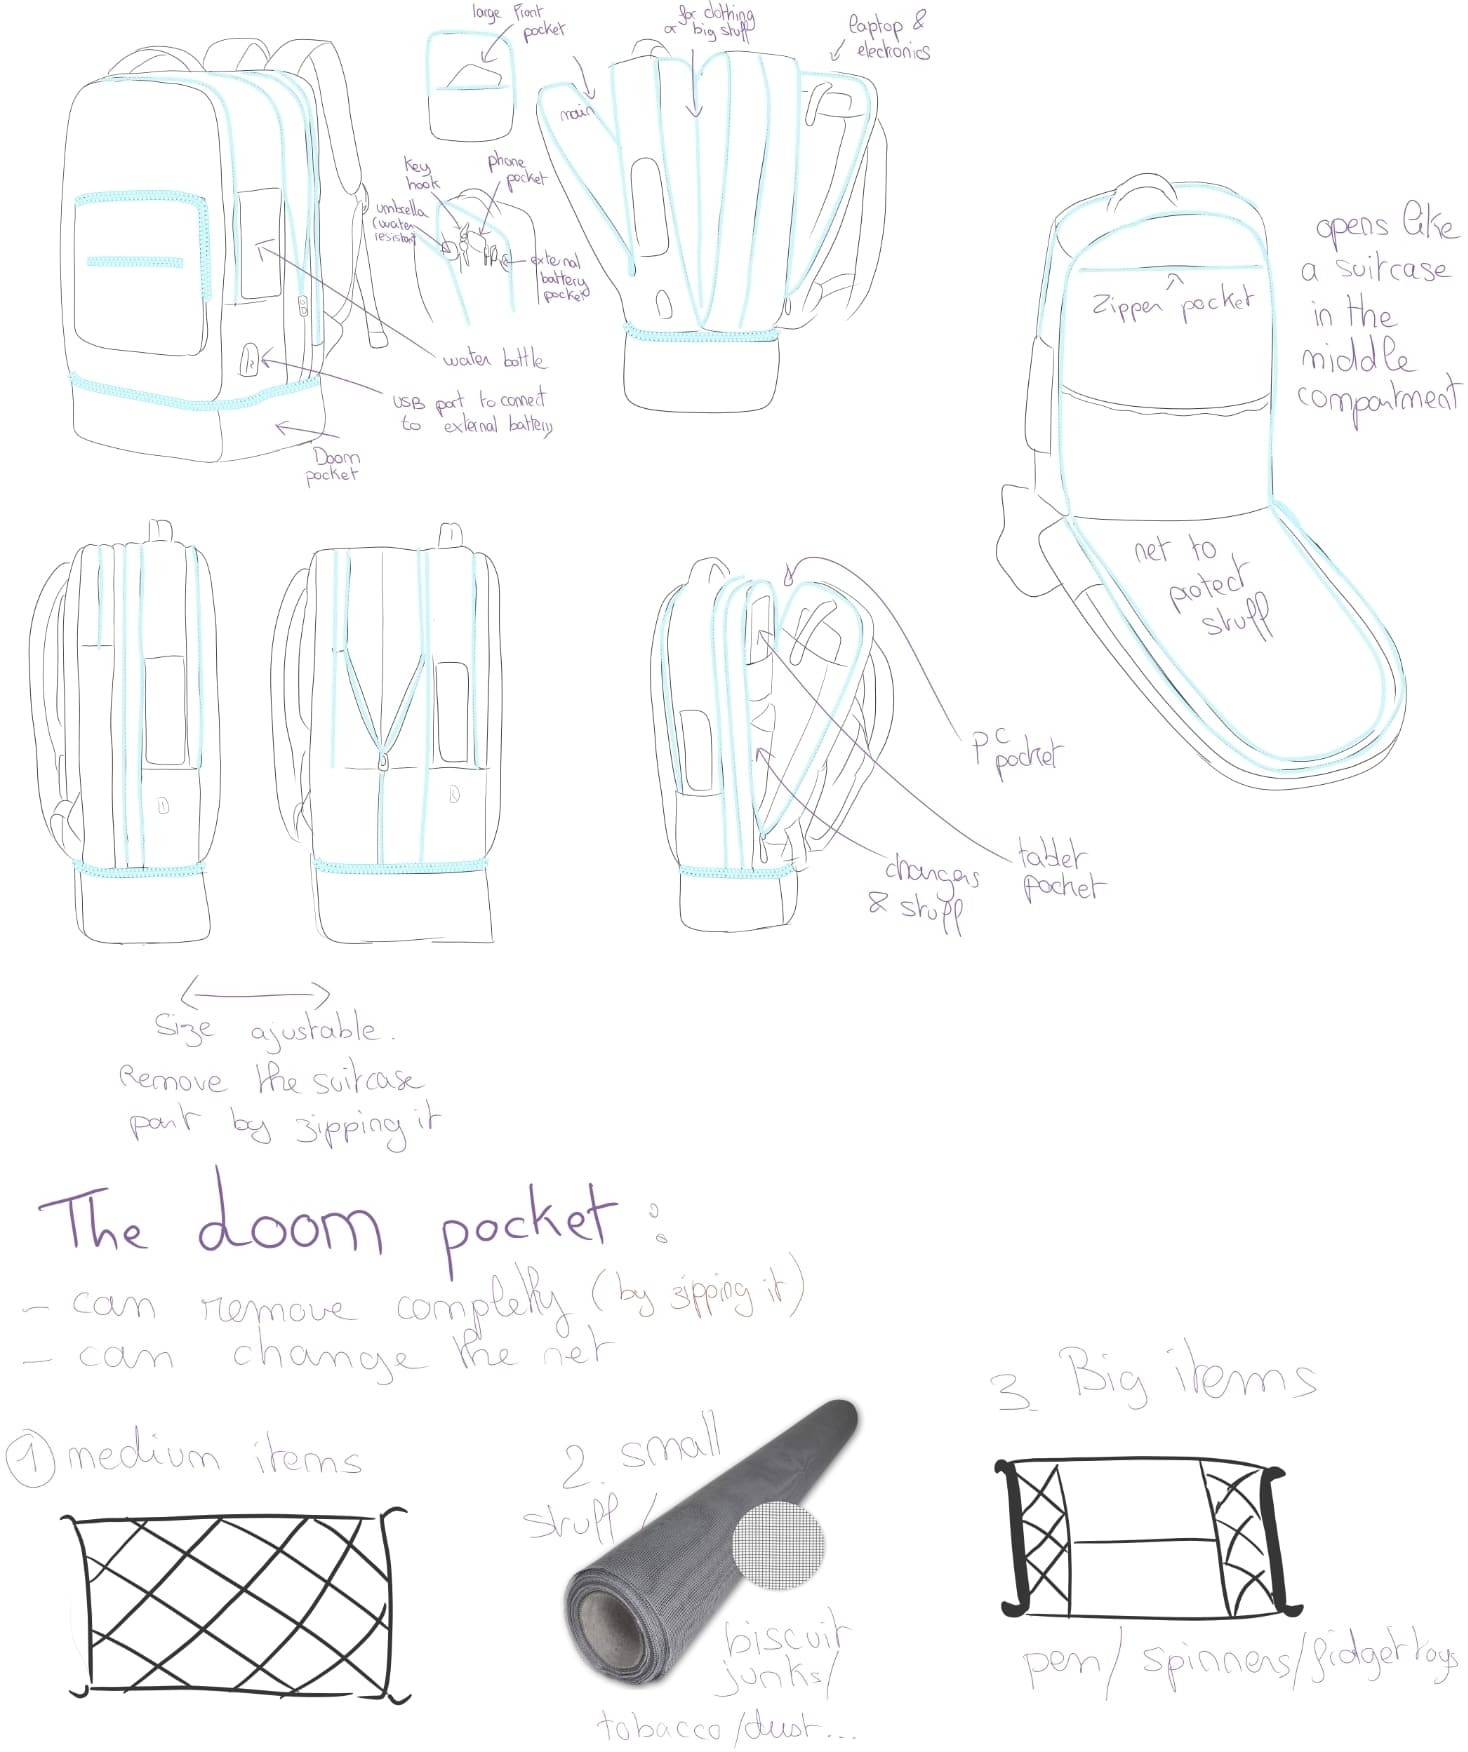 large front
pocket
for clothing
or big stuff
laptop &
eleckonics
main
key
hook
phone
pocket
umbrella
(water
resistant
external
battery
pocket
water bottle
USB port to connect
to external battery
Doom
pocket
opens like
a suitcase
in the
middle
compartment
Zipper pocket
net to
protect
stuff
PC
pocket
tablet
pocket
chargers
& stuff
Size ajustable.
Remove the suitcase
part by zipping it
The doom pocket :
- can remove completly (by zipping it)
- can change the net
1 medium items
2. small
stuff /
biscuit
junks/
tobacco/dust...
3. Big items
pen/ spinners/fidget toys